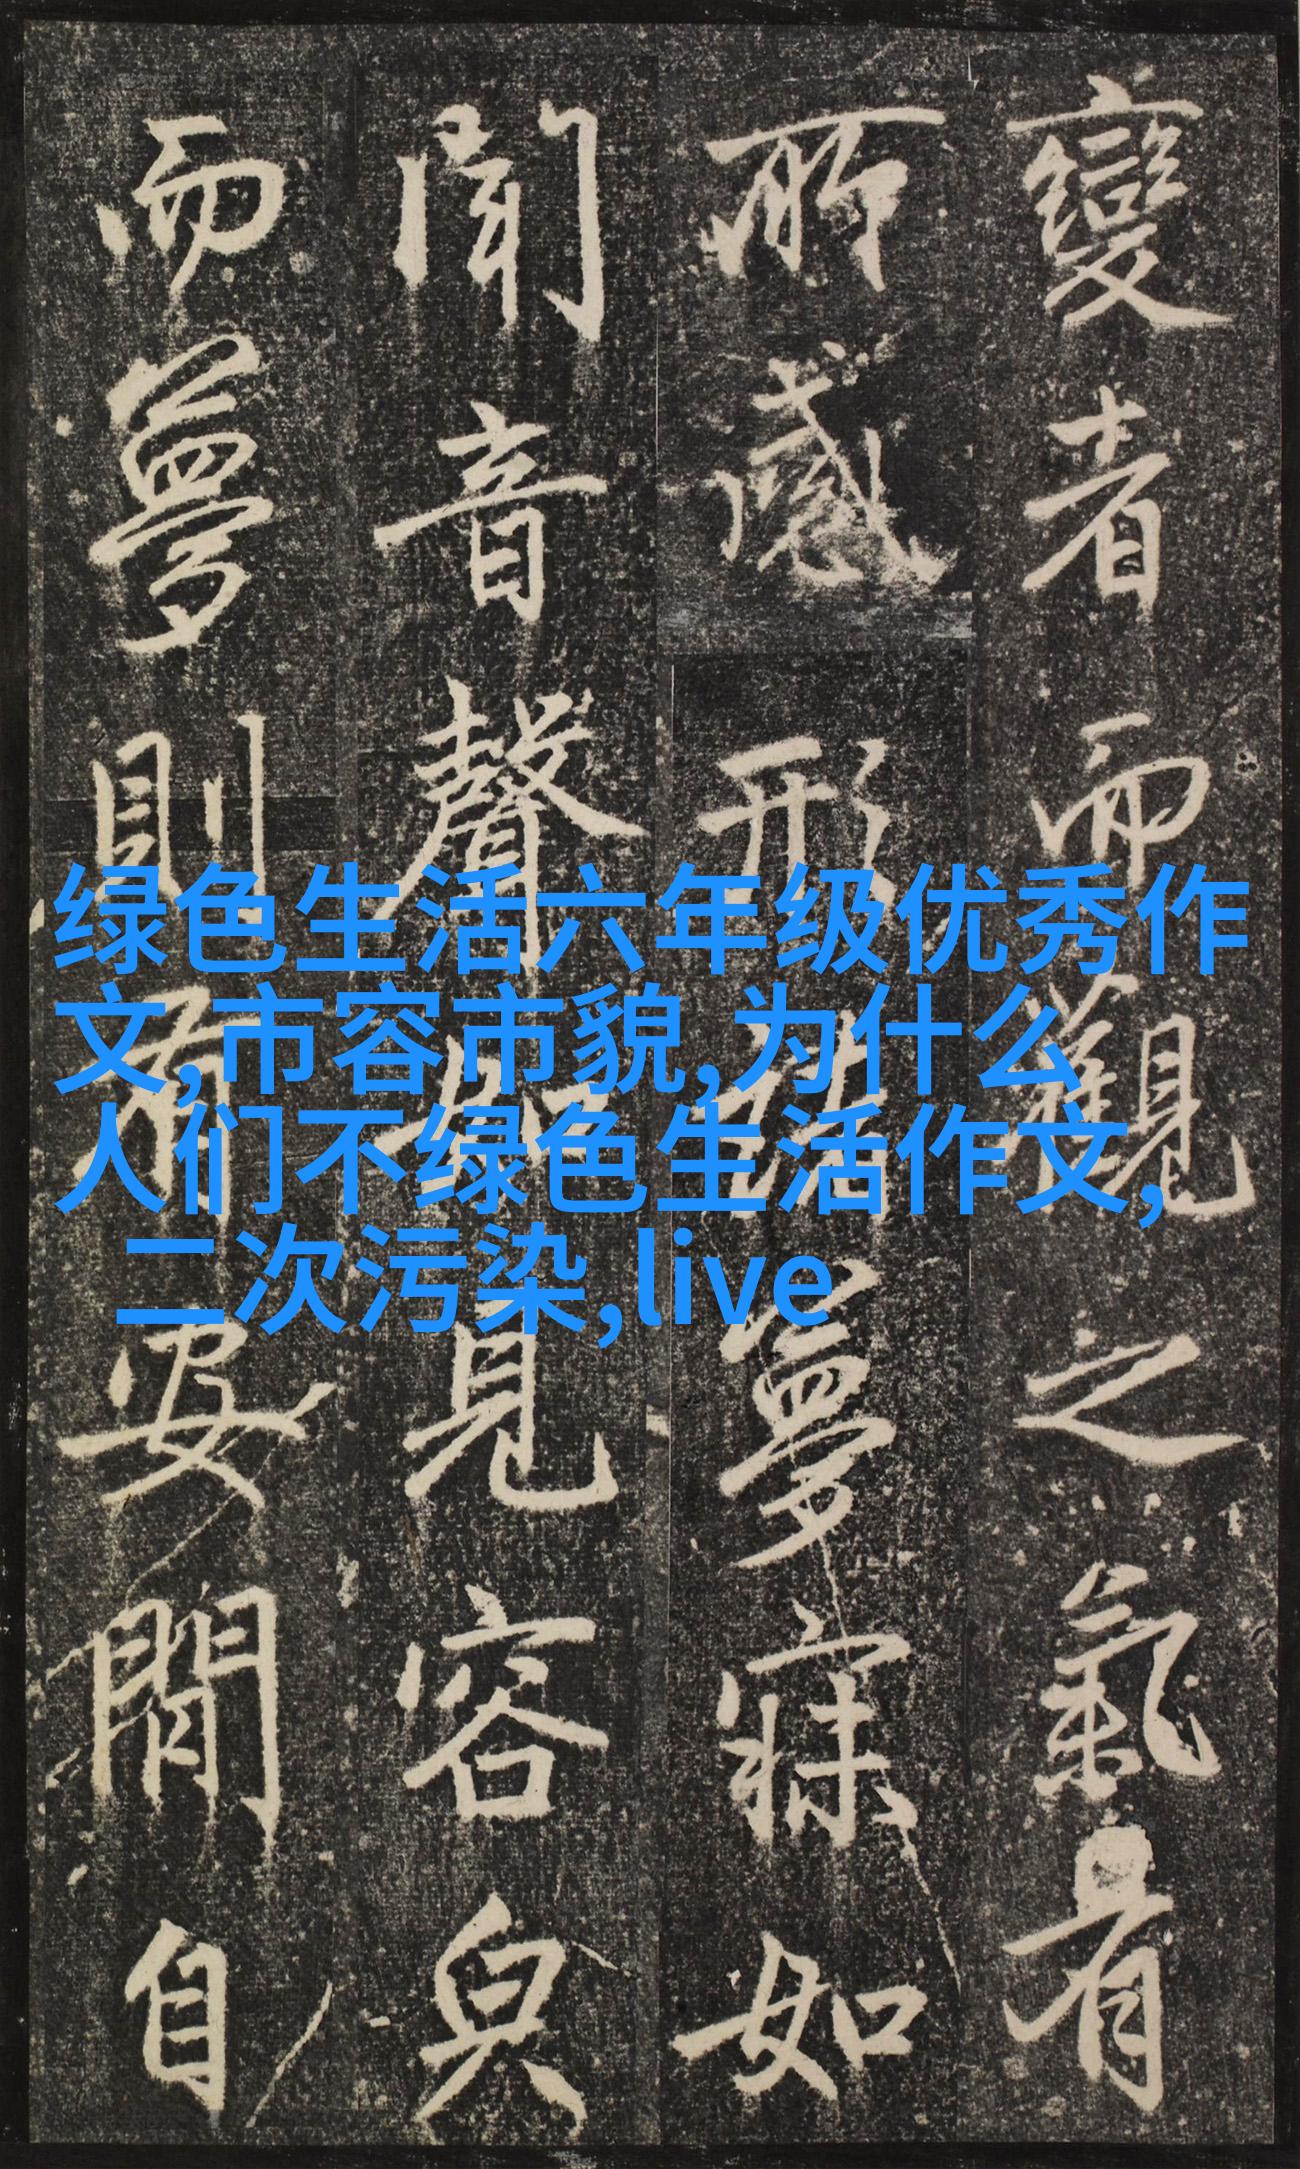 變者而觀之氣有
所感形諸夢寐如
聞音聲如見容皃
而夢則有安閒自
绿色生活六年级优秀作
文,市容市貌,为什么
人们不绿色生活作文,
二次污染,live